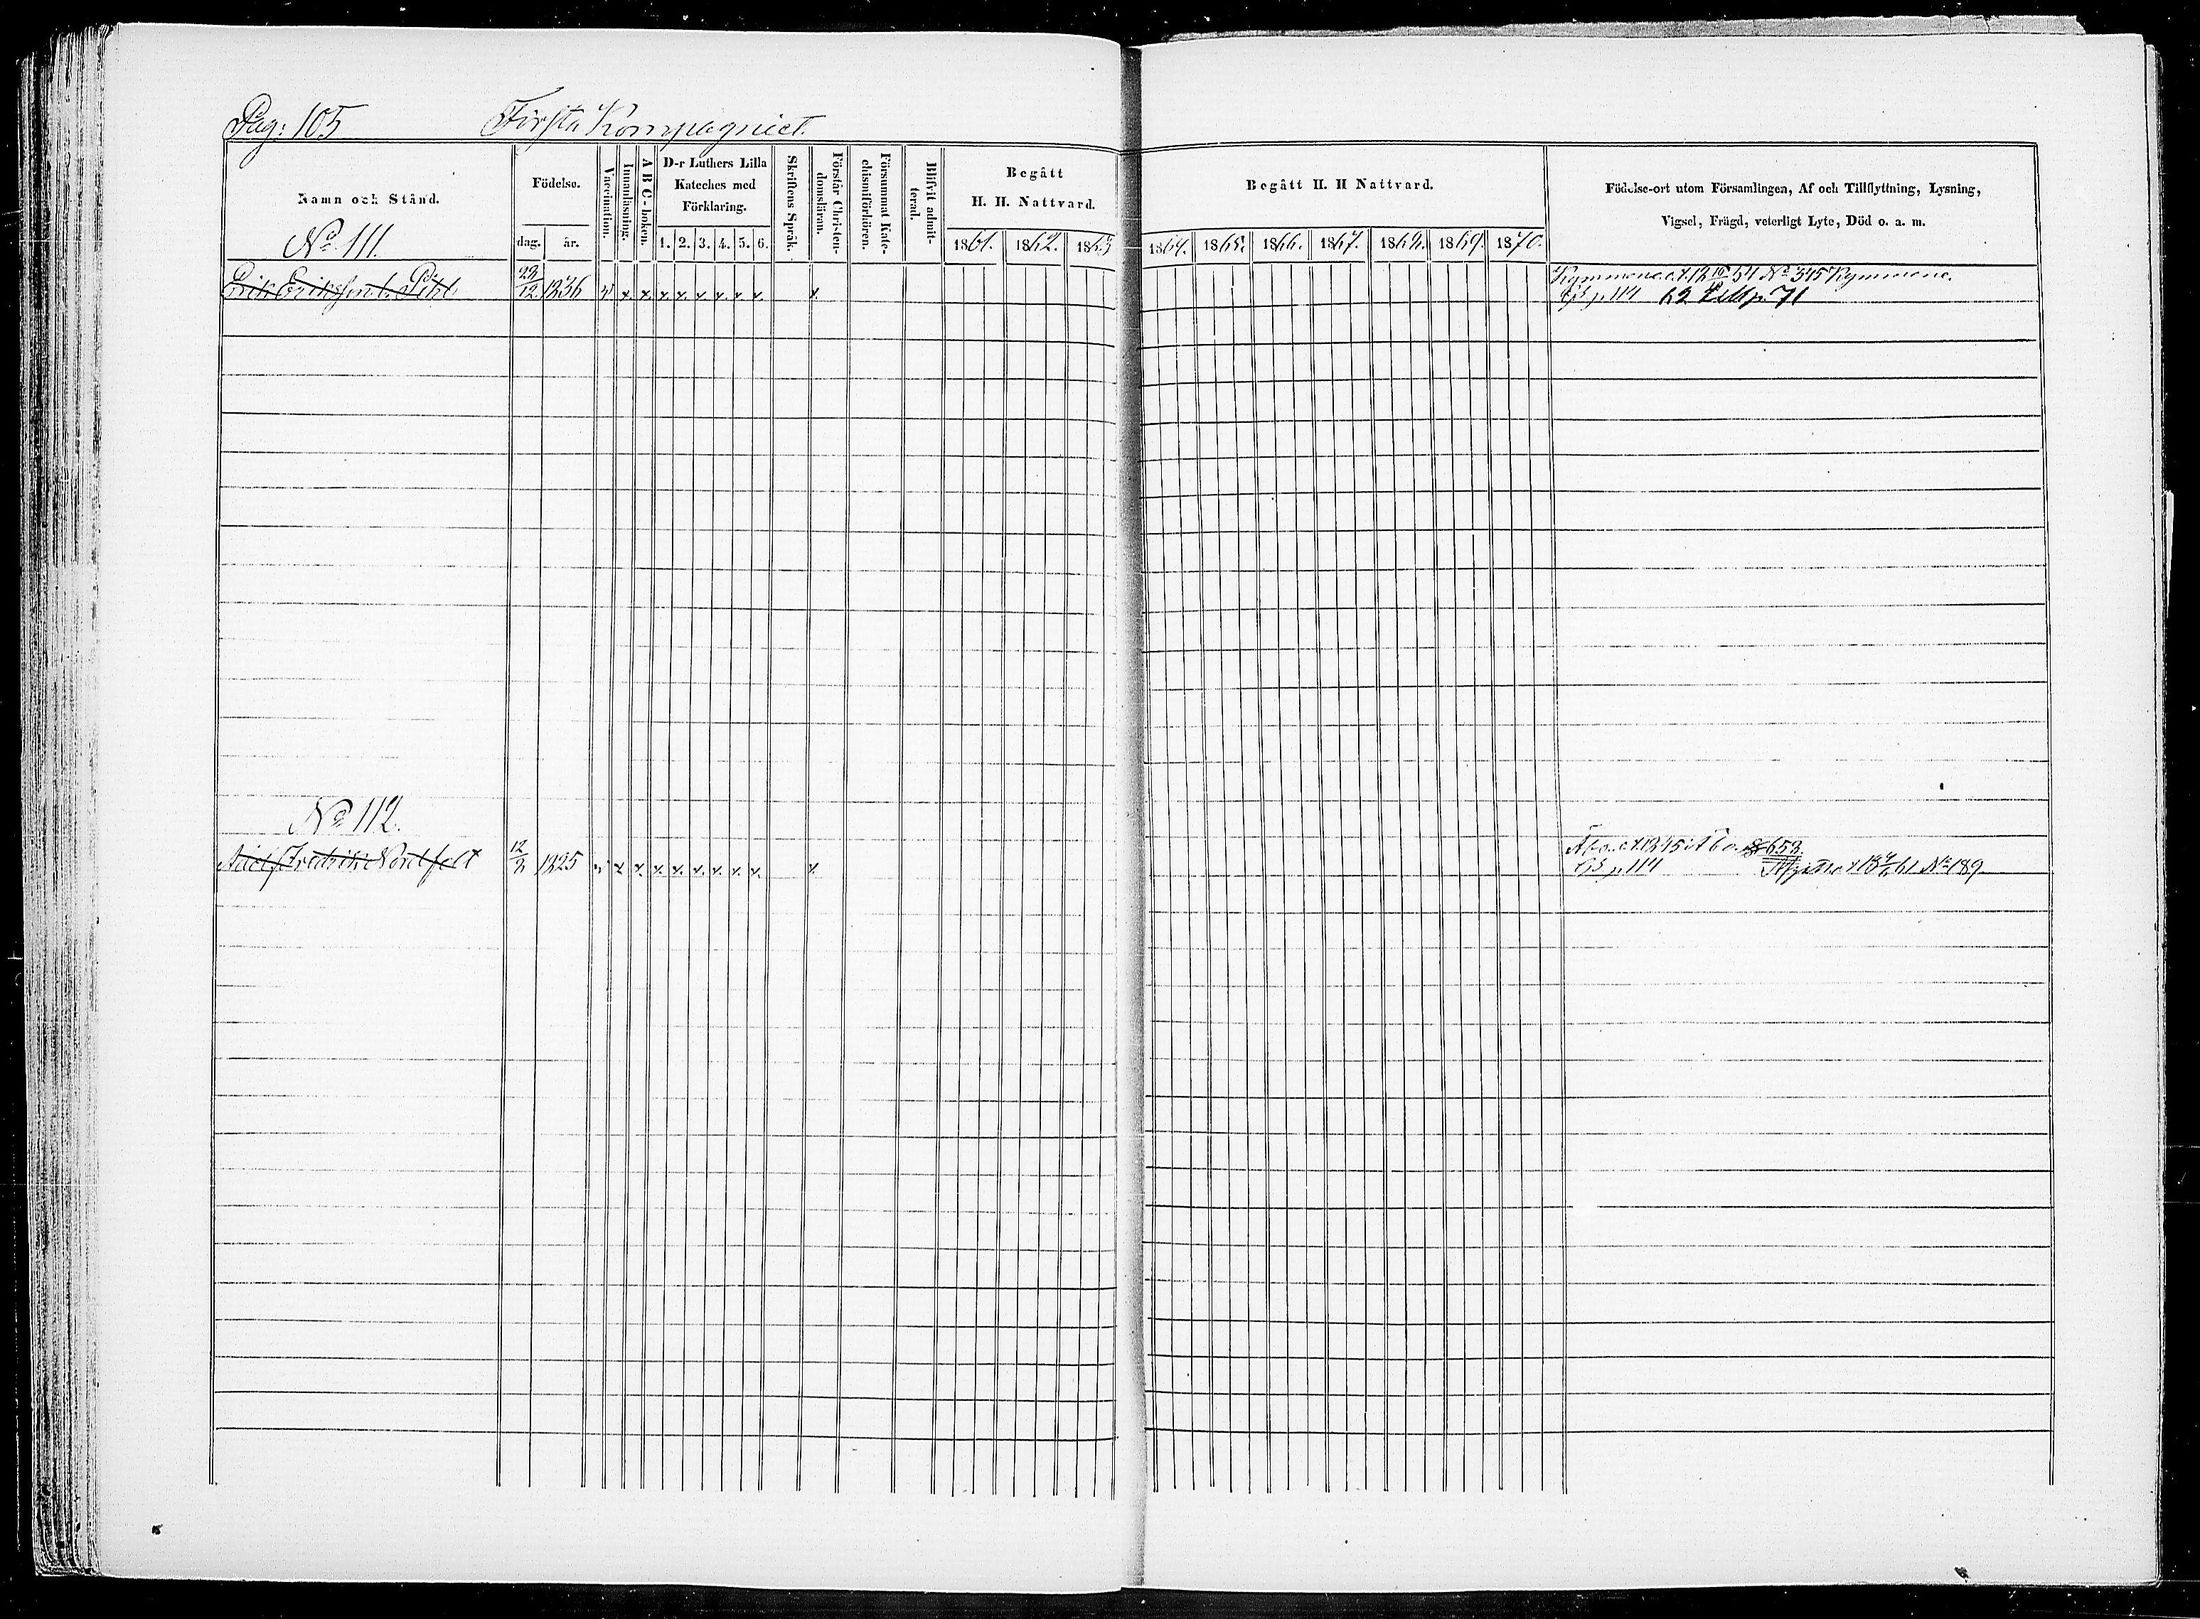 Pag: 105 Första Kompagniet.
Namn och Stånd.
Födelse.
dag. år.
Vaccination.
Innanläsning.
A B C-boken.
D-r Luthers Lilla
Kateches med
Förklaring.
1. 2. 3. 4. 5. 6.
Skriftens Språk.
Förstår Christen-
domsläran.
Försummat Kate-
chismiförhören.
Blifvit admit-
terad.
Begått
H. H. Nattvard.
1861. 1862. 1863
Begått H. H Nattvard.
1864. 1865. 1866. 1867. 1868. 1869. 1870.
Födelse-ort utom Församlingen, Af och Tillflyttning, Lysning,
Vigsel, Frägd, veterligt Lyte, Död o. a. m.
No 111.
Erik Eriksson 23/12 1836 v x. x. x. x. x. x. x. x. x. Kymmene No 345 Kymmene.
p. 114 62 p. 71
No 112.
Adolf Fredrik Nordfelt 12/2 1825 v x. x. x. x. x. x. x. x. x. Åbo 1845 Åbo 653.
p. 114 61 No 189